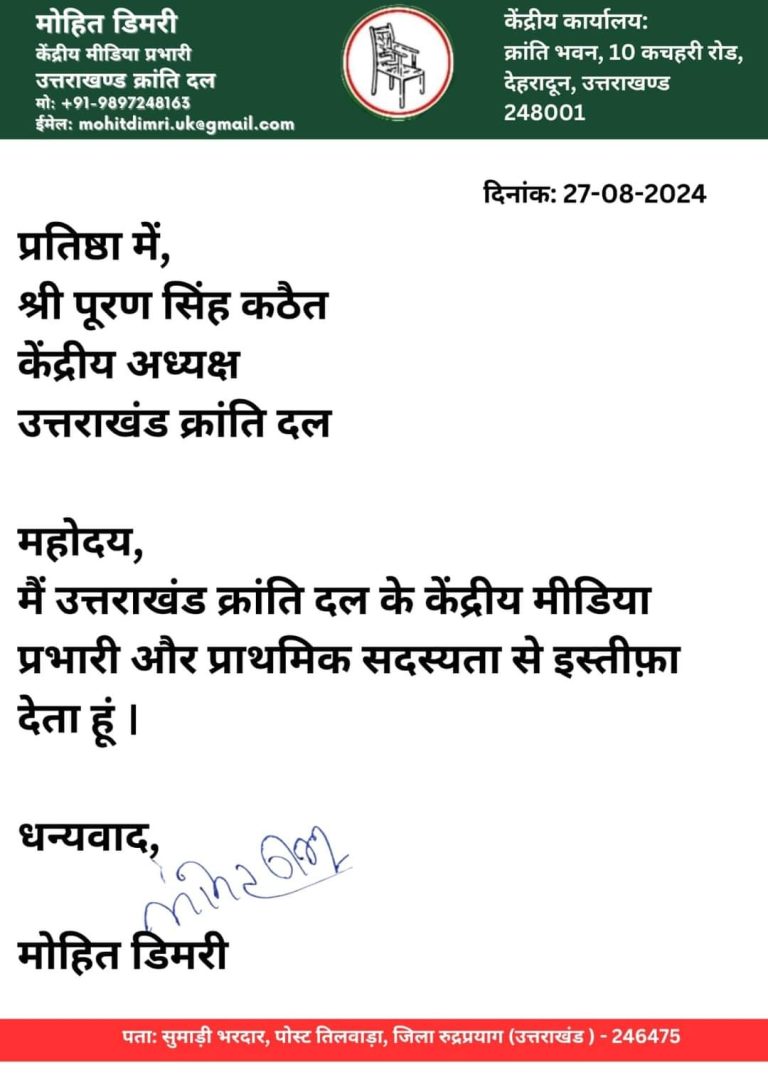 मोहित डिमरी
केंद्रीय मीडिया प्रभारी
उत्तराखण्ड क्रांति दल
मो: +91-9897248163
ईमेल: mohitdimri.uk@gmail.com
केंद्रीय कार्यालय:
क्रांति भवन, 10 कचहरी रोड,
देहरादून, उत्तराखण्ड
248001
दिनांक: 27-08-2024
प्रतिष्ठा में,
श्री पूरण सिंह कठैत
केंद्रीय अध्यक्ष
उत्तराखंड क्रांति दल
महोदय,
मैं उत्तराखंड क्रांति दल के केंद्रीय मीडिया
प्रभारी और प्राथमिक सदस्यता से इस्तीफ़ा
देता हूं ।
धन्यवाद,
मोहित डिमरी
पता: सुमाड़ी भरदार, पोस्ट तिलवाड़ा, जिला रुद्रप्रयाग (उत्तराखंड ) - 246475